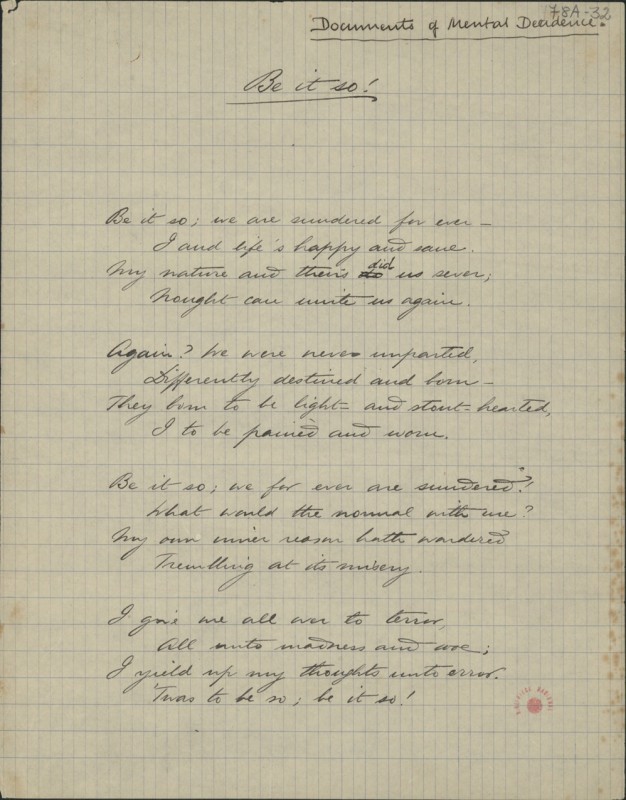 78A-32
Documents of Mental Decadence.
Be it so!
Be it so; we are sundered for ever —
I and life's happy and sane.
My nature and theirs did us sever;
Nought can unite us again.
Again? We were never unparted,
Differently destined and born —
They born to be light- and stout-hearted,
I to be pained and worn.
Be it so; we for ever are sundered!
What would the normal with me?
My own inner reason hath wandered
Trembling at its misery.
I give me all over to terror,
All unto madness and woe;
I yield up my thoughts unto error.
'Twas to be so; be it so!